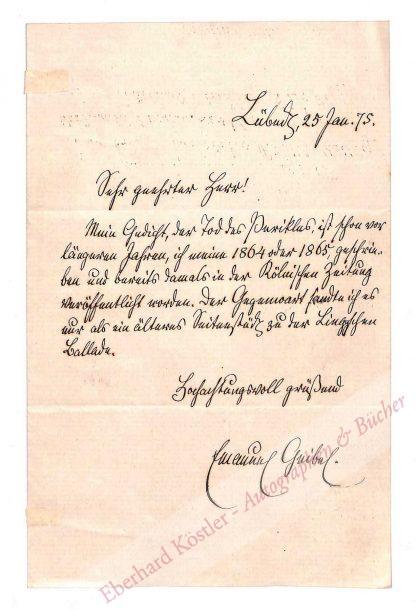 Lübeck, 25 Jan. 75.
Sehr geehrter Herr!
Mein Gedicht, der Tod des Perikles, ist schon vor
längeren Jahren, ich meine 1864 oder 1865 geschrie-
ben und bereits damals in der Kölnischen Zeitung
veröffentlicht worden. Der Gegenwart sandte ich es
nur als ein älteres Seitenstück zu der Lingg'schen
Ballade.
Hochachtungsvoll grüßend
Emanuel Geibel.
Eberhard Köstler - Autographen & Bücher